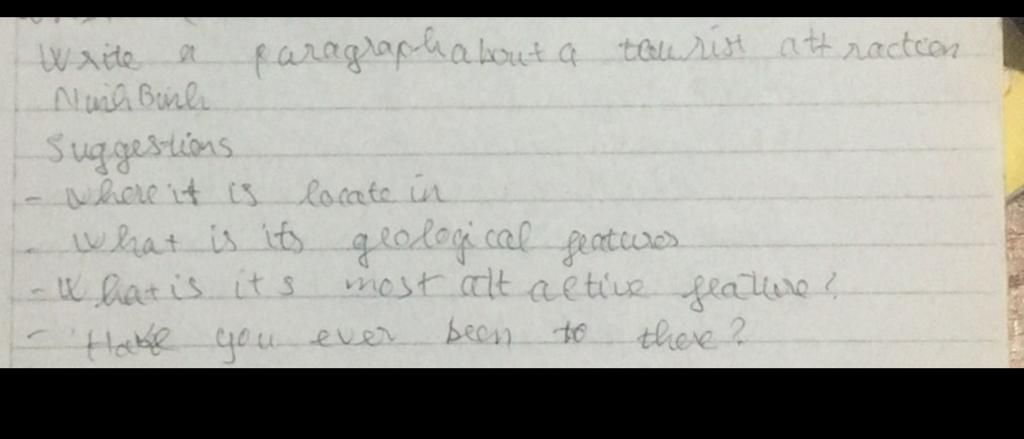 Write a paragraph about a tourist attraction
Ninh Binh
Suggestions
- where it is locate in
- What is its geological features
- What is it s most att active feature?
- Have you ever been to there?